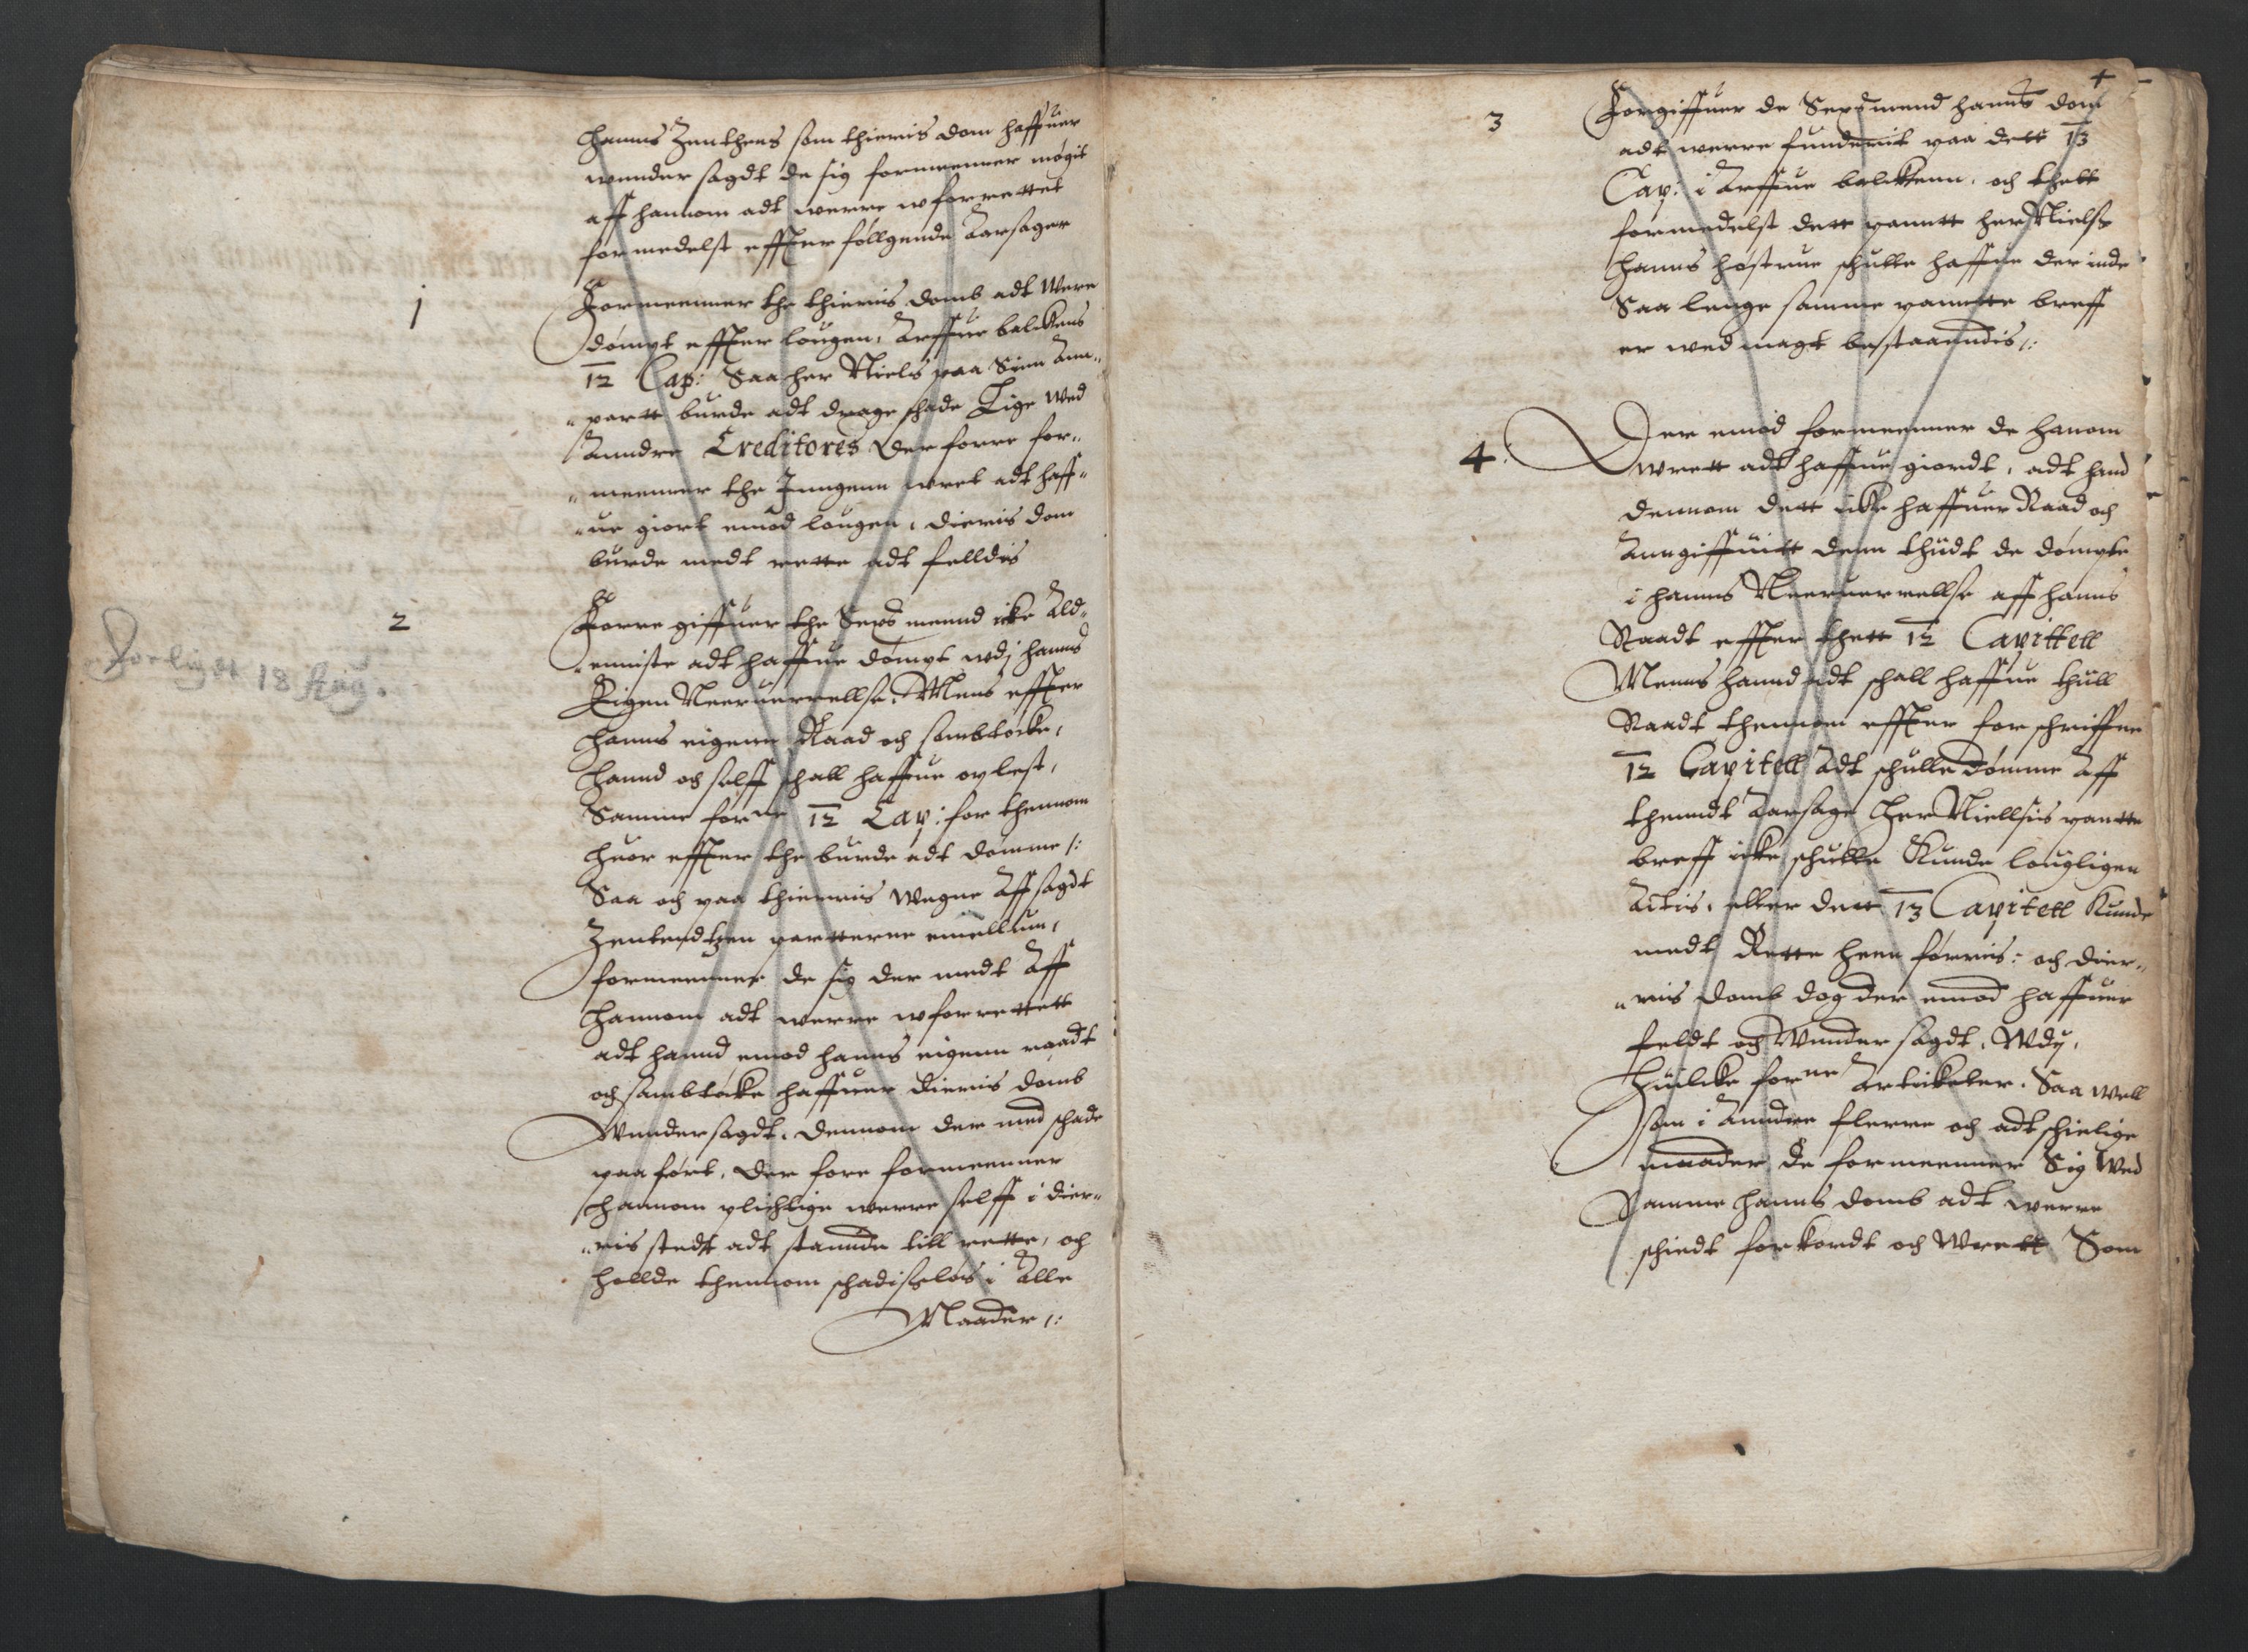 hanns Zenthens som thieris dom haffuer
wunder sagdt de sig formeenner møgit
aff hannom adt werre wforrettet
formedelst effter føllgende Aarsager
1
Formeenner the thieris domb adt were
dømpt effter lougen, Arffue balckens
12 Cap: Saa her Niels paa Sinn Ann-
partt burde adt drage schade Lige wed
Anndre Creditores Derforre for-
meenner the Inngenn wret adt haff-
ue giort emod lougen, dieris dom
burde medt rette adt felldis
2
Forre giffuer the Sexs mennd icke Ald-
eniste adt haffue dømpt wdj hanns
Eigen Neeruerrellse, Mens effter
hanns eigenn Raad och sambtøcke,
hannd och selff schall haffue oplest,
Samme forne 12 Cap: for thennom
huor effter the burde adt dømme /:
Saa och paa thierris wegne Aff sagdt
Zentendtzen partterne emellum,
formeenner de sig der medt Aff
hannom adt werre wforrettett
adt hannd emod hanns eigenn raadt
och sambtøcke haffuer dieris domb
Wunder sagdt, dennom der med schade
paa ført, der fore formeenner
hannom plichtige werre selff i dier-
ris stedt adt stannde till rette, och
hollde thennom schadisløs i Alle
Maader /:
forligt 18 Aug.
4
3
Forgiffuer de Sexsmend hanns dom
adt werre funderit paa dett 13
Cap: i Arffue balckenn, och thett
formedelst dett panntt her Nielss
hanns høstrue schulle haffue der inde
Saa lenge samme pannte breff
er wed magt bestaanndis /:
4.
Der emod formeenner de hanom
wrett adt haffue giordt, adt hand
dennom dett icke haffuer Raad och
Anngiffuitt denn thiidt de dømpte
i hanns Neeruerrellse aff hanns
Raadt effter thett 12 Capittell
Menns hannd adt schall haffue thill
Raadt thennom effter forschriffne
12 Capitell Adt schulle dømme Aff
thenndt Aarsage Her Niellsis pantte
breff icke schulle Kunde louigligen
Actis, eller dett 13 Capitell Kunde
medt Rette heen førris: och dier-
ris domb dog der emod haffuer
feldt och Wunder sagdt, Wdj,
Huilcke forne Artickeler, Saa well
som i Anndre flerre och adt schielige
maader de formeenner Sig Wed
Samme hanns domb adt werre
schiedt forkordt och Wrett Som